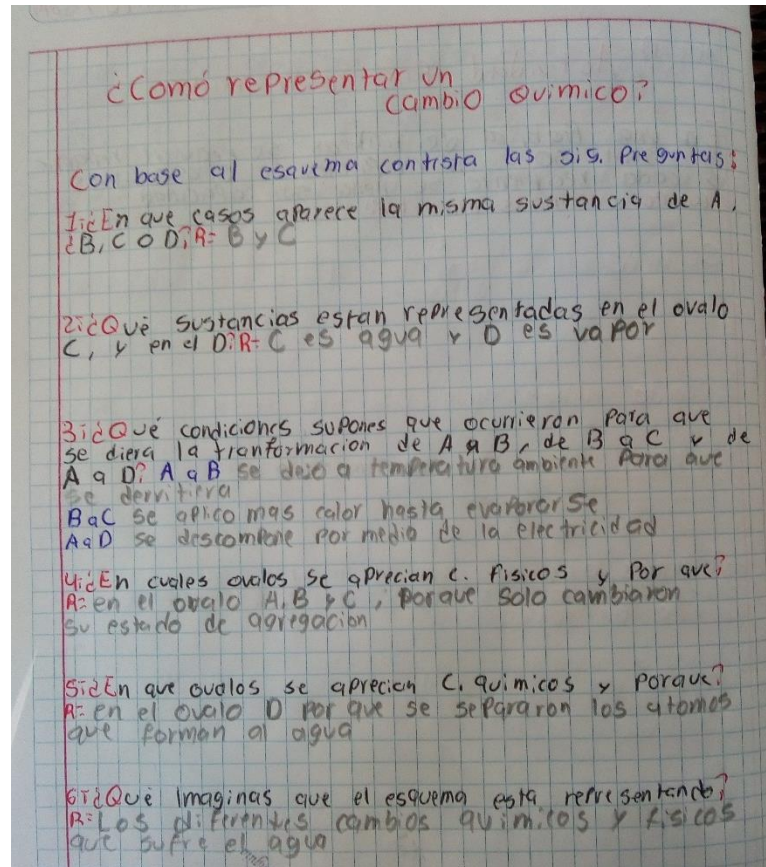 ¿Comó representar un
cambio quimico?
Con base al esquema contista las sis. preguntas:
1.¿En que casos aparece la misma sustancia de A,
¿B, C o D? R= B y C
2.¿Qué sustancias estan representadas en el ovalo
C, y en el D? R= C es agua y D es vapor
3.¿Qué condiciones supones que ocurrieron para que
se diera la tranformacion de A a B, de B a C y de
A a D? A a B se dejo a temperatura ambiente para que
se derritiera
B a C se aplico mas calor hasta evapororse
A a D se descompone por medio de la electricidad
4.¿En cuales ovalos se aprecian c. fisicos y por que?
R= en el ovalo A, B y C, porque solo cambiaron
su estado de agregacion
5.¿En que ovalos se aprecian c. quimicos y porque?
R= en el ovalo D por que se separaron los atomos
que forman al agua
6.¿Qué imaginas que el esquema esta representando?
R= Los diferentes cambios quimicos y fisicos
que sufre el agua